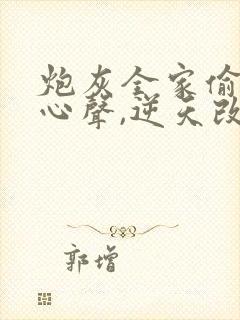 炮灰全家偷
心聲,逆天改
郭增